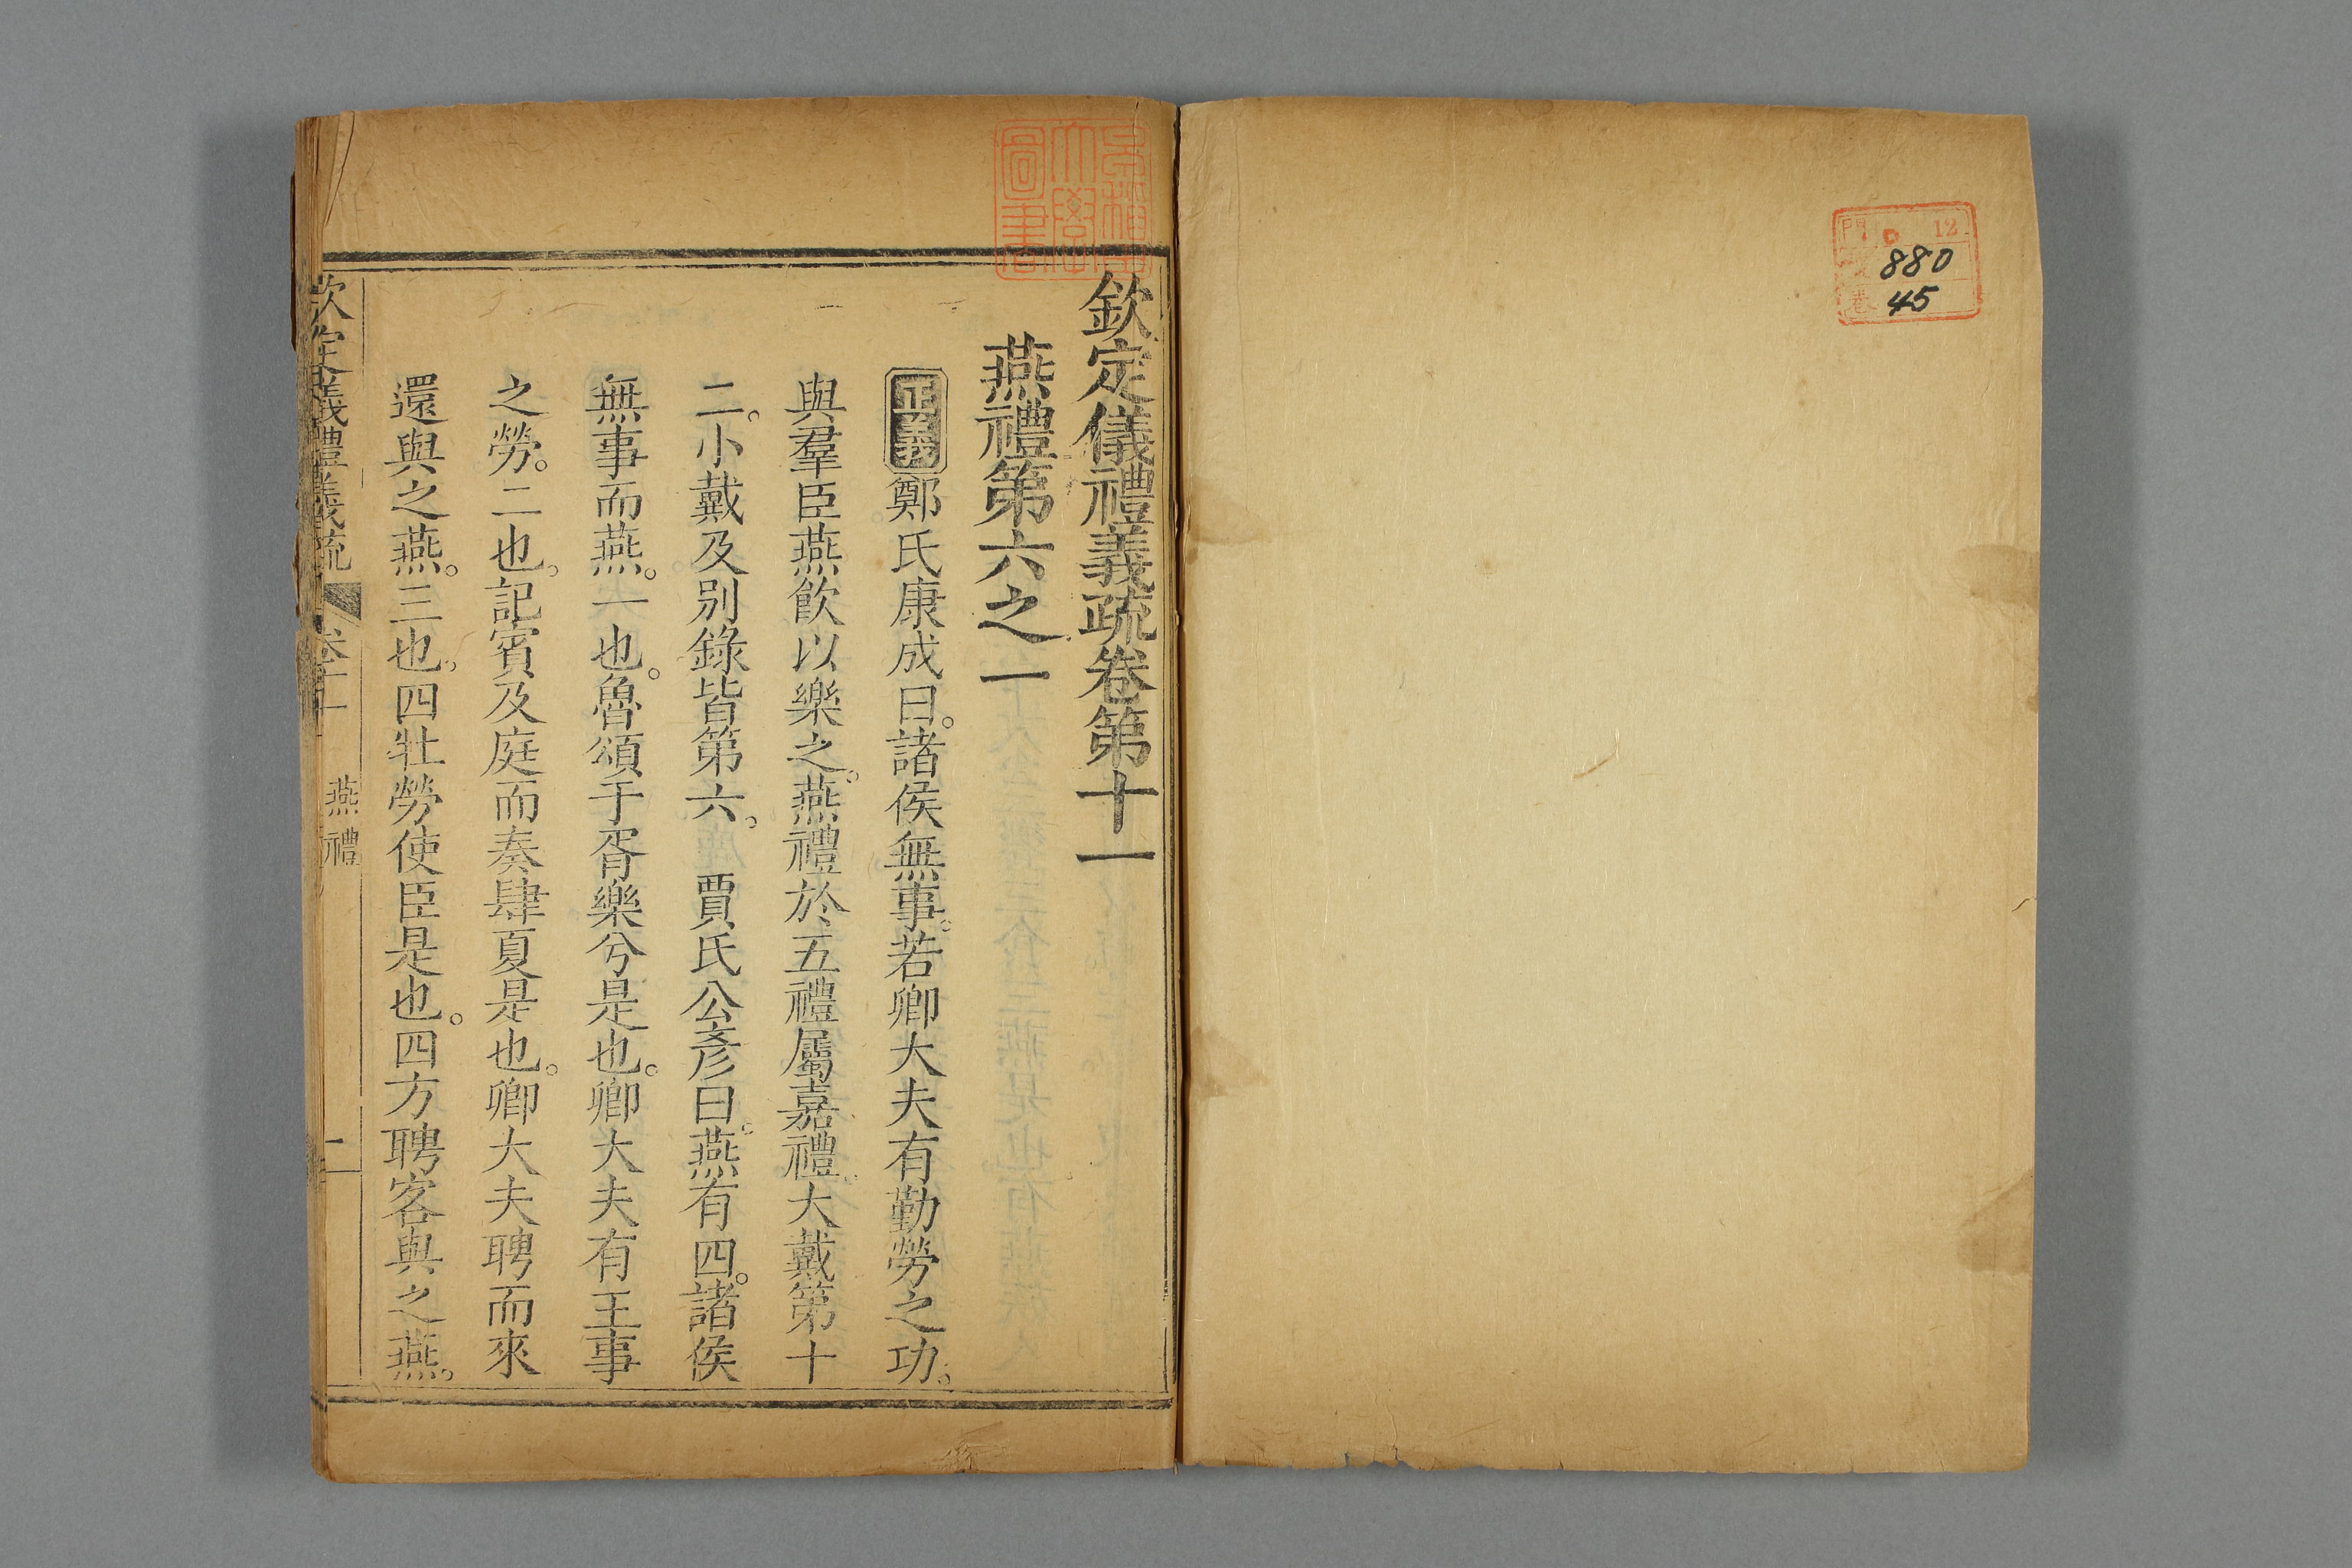 門 12
880
45
欽定儀禮義疏卷第十一
燕禮第六之一
正義鄭氏康成曰。諸侯無事。若卿大夫有勤勞之功。
與羣臣燕飮以樂之。燕禮於五禮屬嘉禮。大戴第十
二。小戴及別錄皆第六。 賈氏公彥曰。燕有四。諸侯
無事而燕。一也。魯頌于胥樂兮是也。卿大夫有王事
之勞。二也。記賓及庭而奏肆夏是也。卿大夫聘而來
還與之燕。三也。四牡勞使臣是也。四方聘客與之燕。
欽定儀禮義疏 卷十一 燕禮 一